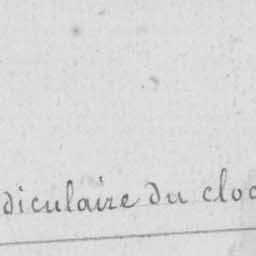 diculaire du cloc